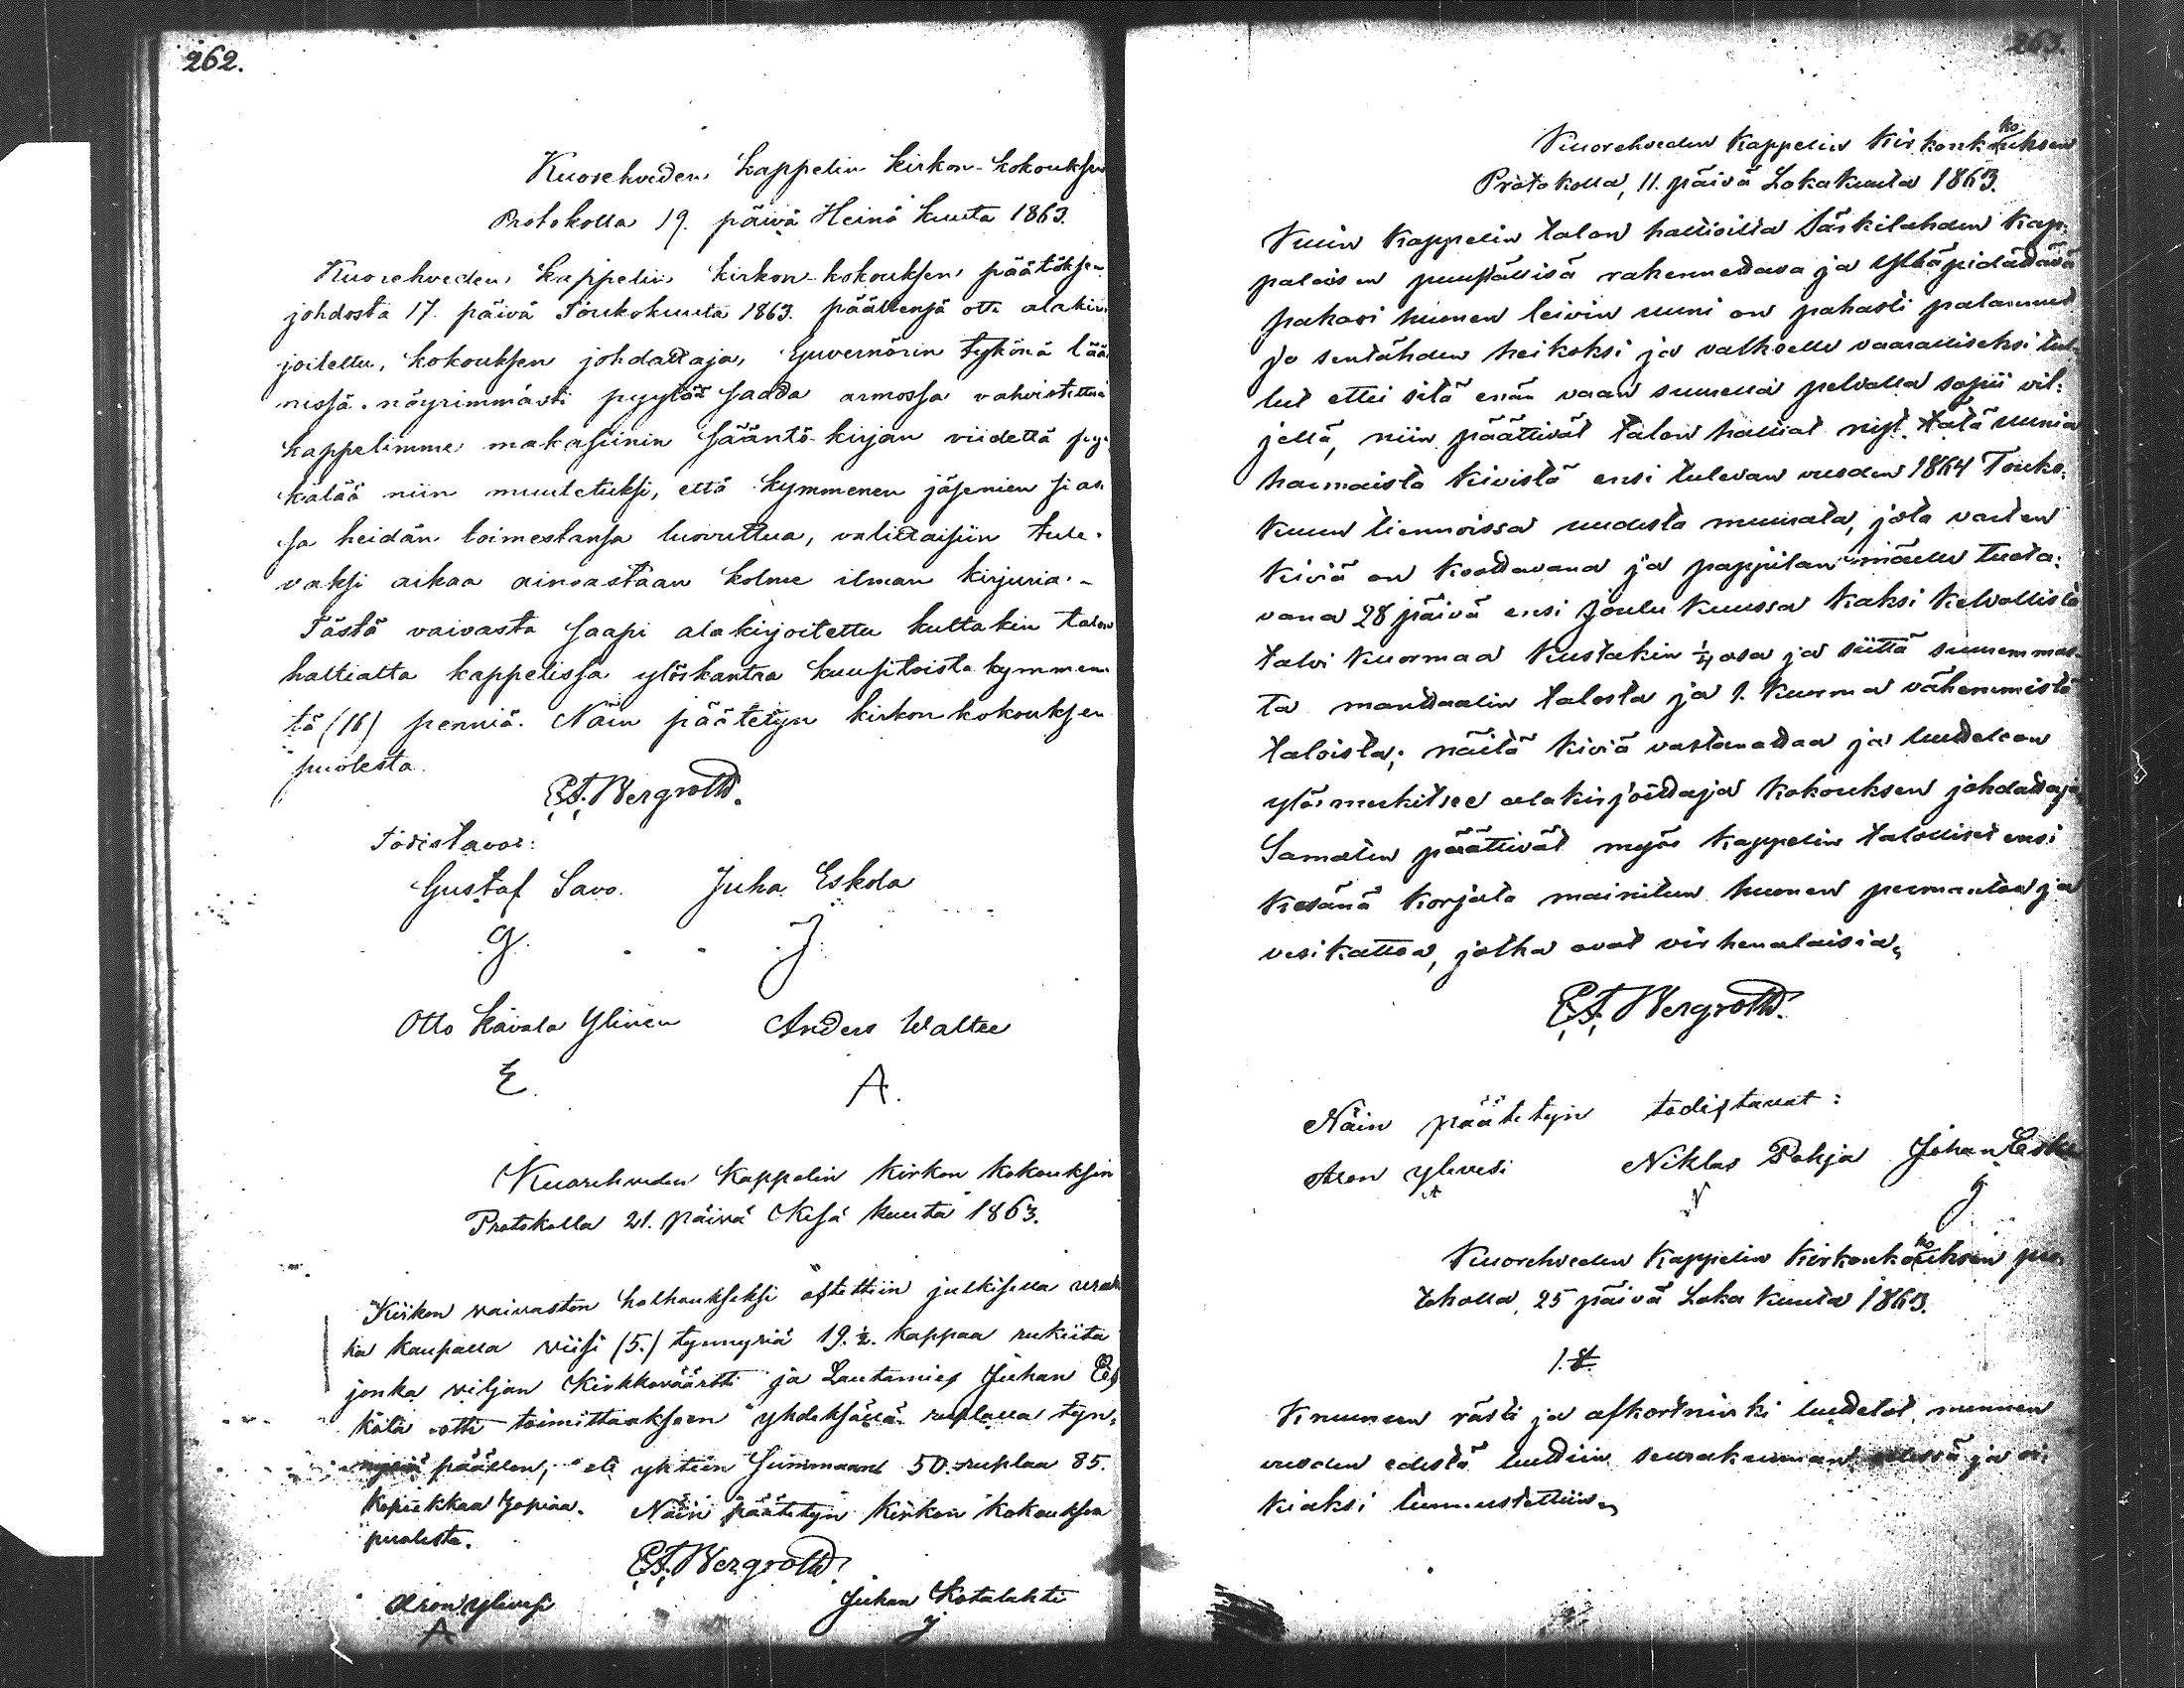 262.
Kuorehveden kappelin kirkon-kokouksen
Protokolla 19. päivä Heinä kuuta 1863.
Kuorehveden kappelin kirkon-kokouksen päätöksen
johdosta 17. päivä Toukokuuta 1863. päällensä otti alakir
joitettu, kokouksen johdattaja, Guvernörin tykönä lää
nissä nöyrimmästi pyytää saada armossa vahvistettua
kappelimme makasiinin sääntö-kirjan viidettä py
kälää niin muutetuksi, että kymmenen jäsenien sias
sa heidän toimestansa luovuttua, valittaisiin tule-
vaksi aikaa ainoastaan kolme ilman kirjuria.-
Tästä vaivasta saapi alakirjoitettu kultakin talon
haltialta kappelissa ylöskantaa kuusitoista kymmen
tä (16) penniä. Näin päätetyn kirkon kokouksen
puolesta.
E.A. Bergroth.
Todistavat:
Gustaf Savo. Juha Eskola
G. J.
Otto Kävälä Ylinen Anders Waltee
E. A.
Kuorehveden Kappelin Kirkon Kokouksin
Protokolla 21. päivä Kesä kuuta 1863.
Kirkon vaivasten holhoukseksi ostettiin julkisella urak
ka kaupalla viisi (5.) tynnyriä 19.½. kappaa rukiita
jonka viljan Kirkkoväärtti ja Lautamies Juhan Es
kola otti toimittaaksen yhdeksällä ruplalla tyn,
päällen, eli yhteen Summaan 50. ruplaa 85.
kopeekkaa Hopiaa. Näin päätetyn Kirkon Kokouksen
puolesta.
E.A. Bergroth.
Aron Ylivesi Juhan Kotalahti
A J
263.
Kuorehveden Kappelin Kirkonkokouksen
Protokolla, 11. päivä Lokakuuta 1863.
Kuin Kappelin talon haltioilta Särkilahden Kap-
palaisen puuställisä rakennettava ja ylläpidättävä
pakari huonen leivin uuni on pahasti palanut
ja sentähden heikoksi ja valkealle vaaralliseksi tul-
lut ettei sitä enän vaan suurella pelvolla sopii vil-
jellä, niin päättivät talon haltiat nyt tätä uunia
harmaista kivistä ensi tulevan vuoden 1864 Touko-
kuun tiennoissa uudesta muurata, jota varten
kiviä on koottavana ja pappilan mäelle tuota-
vana 28 päivä ensi Joulu kuussa kaksi kelvollista
talvi kuormaa kustakin ¼ osa ja siittä suuremmas-
ta manttaalin talosta ja 1. kuorma vähemmistä
taloista; näitä kiviä vastanottaa ja luetteloon
ylösmerkitsee allakirjoittaja kokouksen johdattaja,
Samaten päättivät myös Kappelin talolliset ensi
kesänä korjata mainitun huonen permantoa ja
vesikattoa, jotka ovat virhenalaisia,
E.A. Bergroth.
Näin päätetyn todistavat:
Aron Ylivesi Niklas Pohja Johan Esko
A N J
Kuorehveden Kappelin Kirkonkokouksen pro
tokolla, 25 päivä Loka kuuta 1863.
1. §.
Kruunun rästi ja afkortninki luettelot mennen
vuoden edestä luettiin seurakunnan edessä ja oi-
kiaksi tunnustettiin,